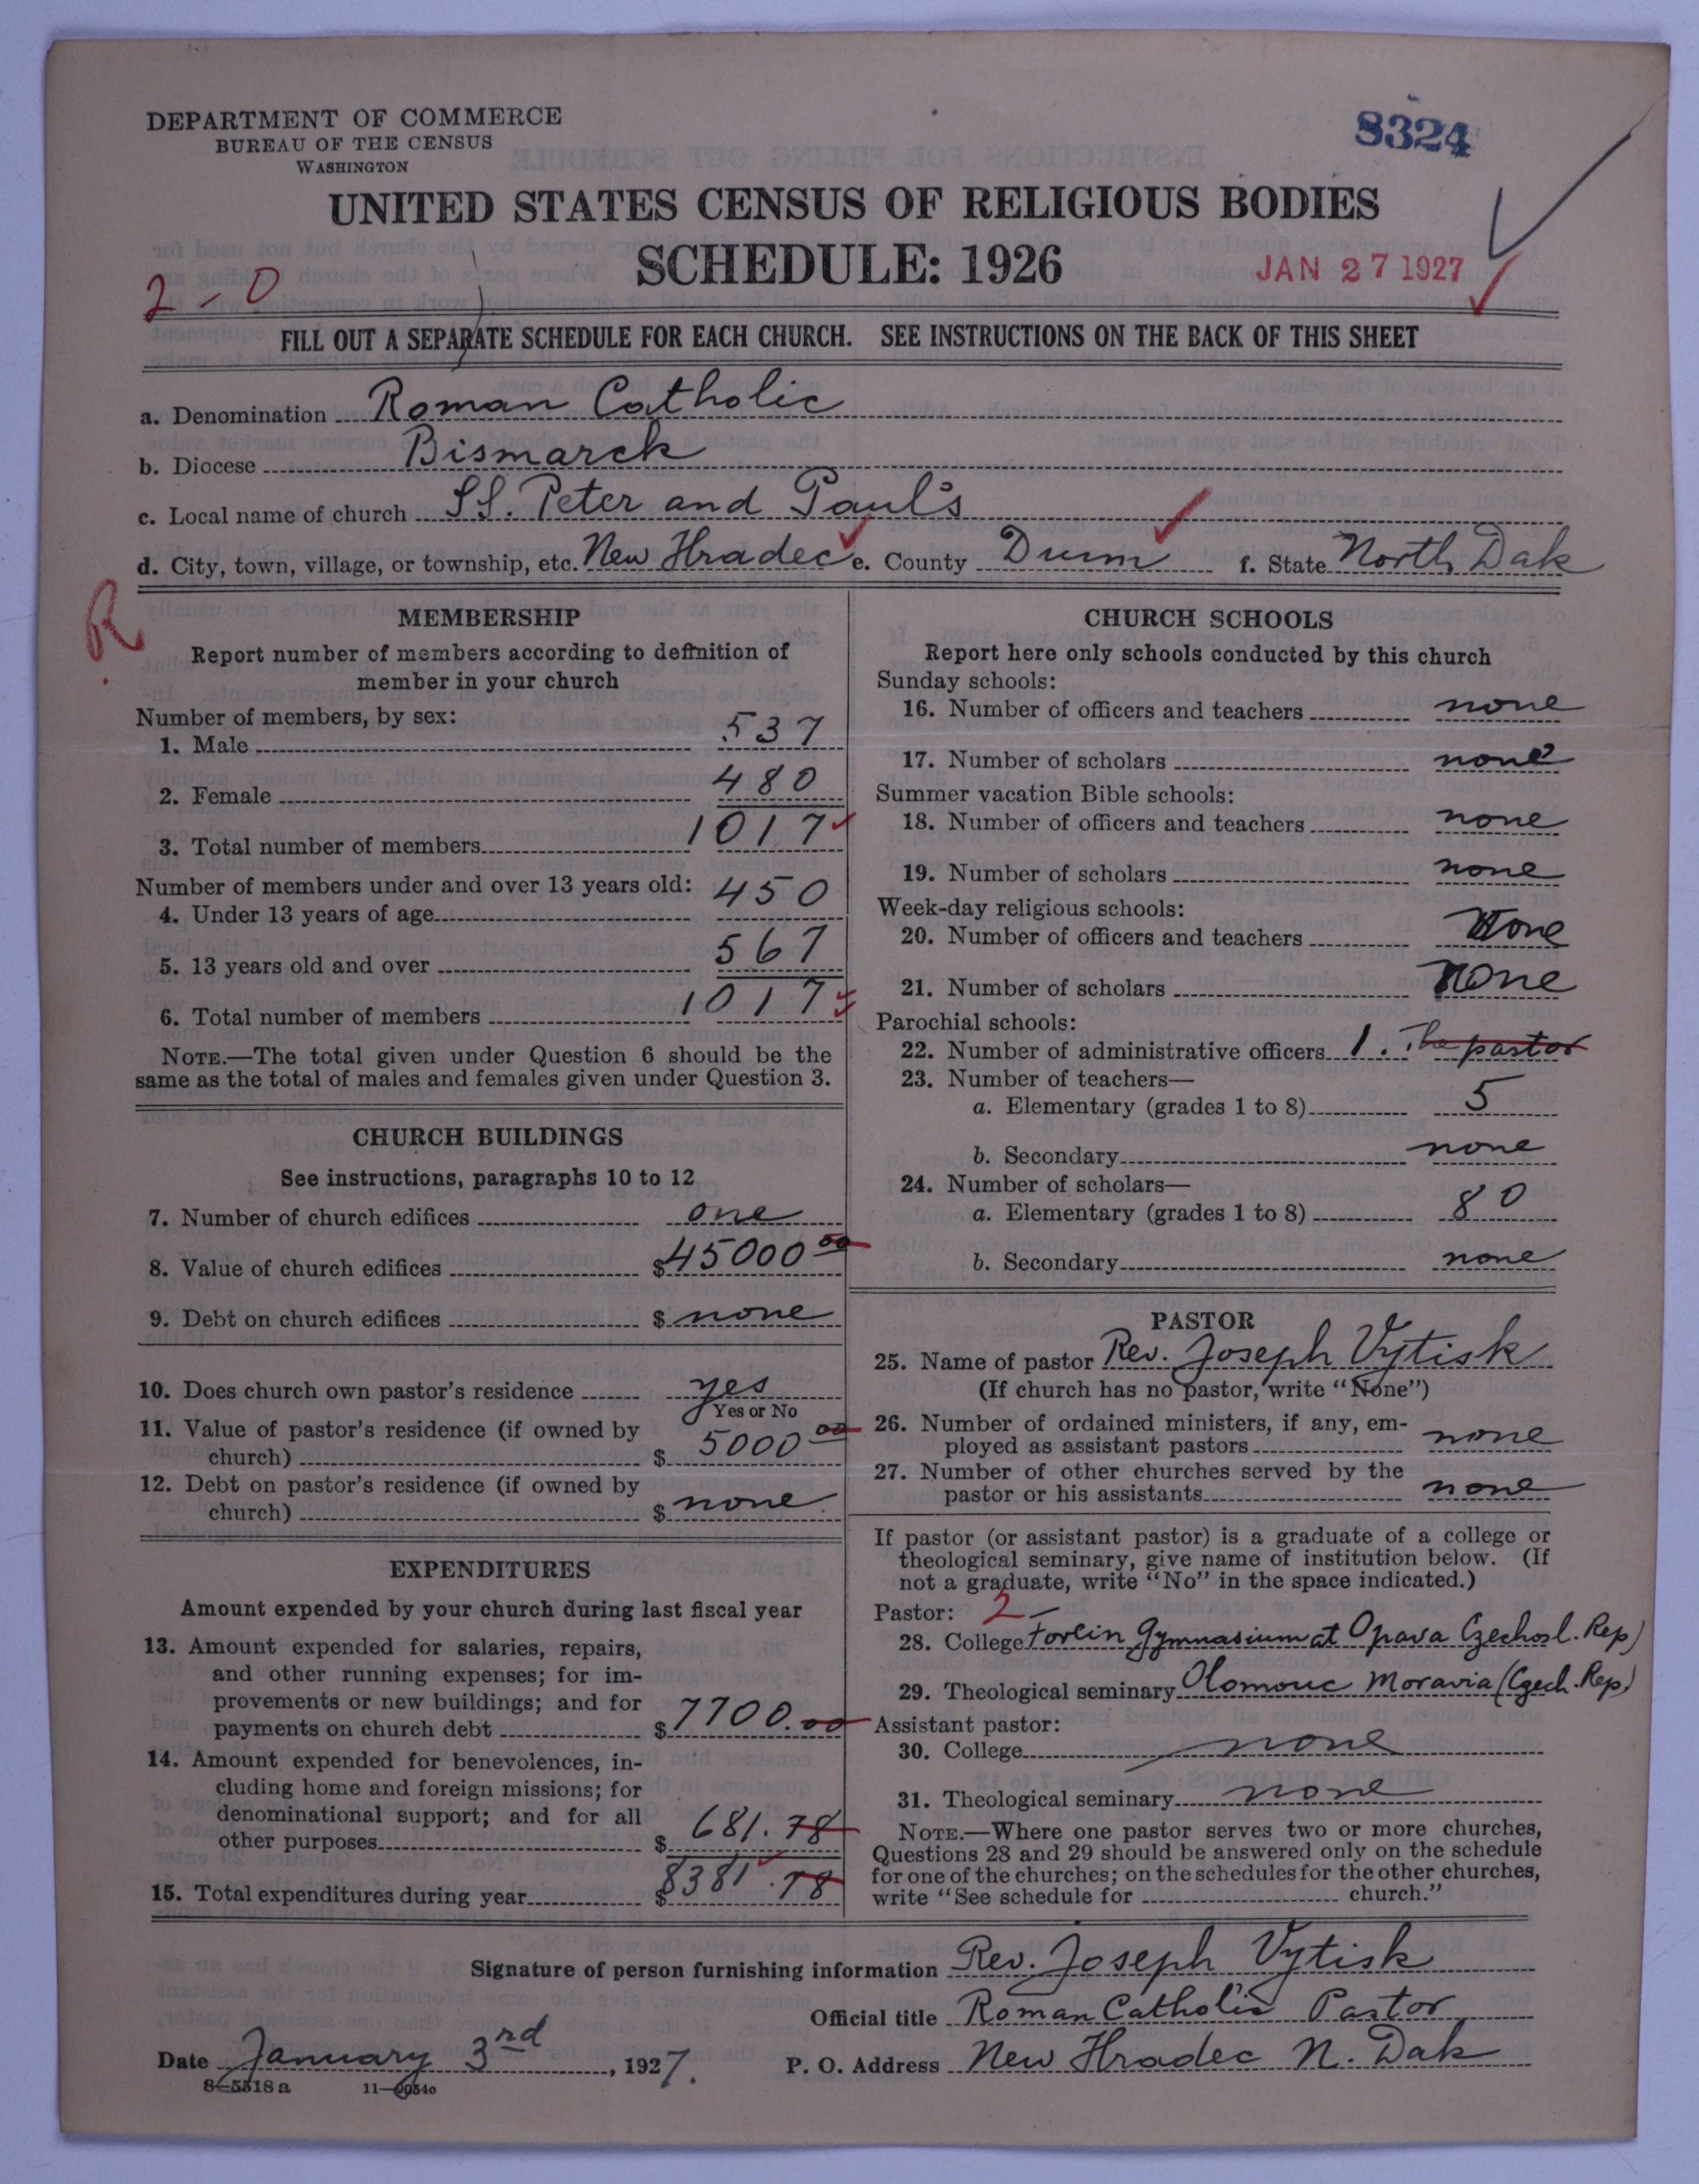 DEPARTMENT OF COMMERCE
BUREAU OF THE CENSUS
WASHINGTON
8324
UNITED STATES CENSUS OF RELIGIOUS BODIES
SCHEDULE: 1926
JAN 27 1927
2-0
FILL OUT A SEPARATE SCHEDULE FOR EACH CHURCH. SEE INSTRUCTIONS ON THE BACK OF THIS SHEET
a. Denomination Roman Catholic
b. Diocese Bismarck
c. Local name of church SS. Peter and Paul's
d. City, town, village, or township, etc. New Hradec e. County Dunn f. State North Dak
R
MEMBERSHIP
Report number of members according to definition of
member in your church
Number of members, by sex:
1. Male 537
2. Female 480
3. Total number of members 1017
Number of members under and over 13 years old:
4. Under 13 years of age 450
5. 13 years old and over 567
6. Total number of members 1017
NOTE.—The total given under Question 6 should be the
same as the total of males and females given under Question 3.
CHURCH BUILDINGS
See instructions, paragraphs 10 to 12
7. Number of church edifices one
8. Value of church edifices $45000 00
9. Debt on church edifices $ none
10. Does church own pastor's residence yes
Yes or No
11. Value of pastor's residence (if owned by
church) $ 5000 00
12. Debt on pastor's residence (if owned by
church) $ none
EXPENDITURES
Amount expended by your church during last fiscal year
13. Amount expended for salaries, repairs,
and other running expenses; for im-
provements or new buildings; and for
payments on church debt $7700.00
14. Amount expended for benevolences, in-
cluding home and foreign missions; for
denominational support; and for all
other purposes $ 681.78
15. Total expenditures during year $8381.78
CHURCH SCHOOLS
Report here only schools conducted by this church
Sunday schools:
16. Number of officers and teachers none
17. Number of scholars none
Summer vacation Bible schools:
18. Number of officers and teachers none
19. Number of scholars none
Week-day religious schools:
20. Number of officers and teachers None
21. Number of scholars None
Parochial schools:
22. Number of administrative officers 1. The pastor
23. Number of teachers—
a. Elementary (grades 1 to 8) 5
b. Secondary none
24. Number of scholars—
a. Elementary (grades 1 to 8) 80
b. Secondary none
PASTOR
25. Name of pastor Rev. Joseph Vytisk
(If church has no pastor, write "None")
26. Number of ordained ministers, if any, em-
ployed as assistant pastors none
27. Number of other churches served by the
pastor or his assistants none
If pastor (or assistant pastor) is a graduate of a college or
theological seminary, give name of institution below. (If
not a graduate, write "No" in the space indicated.)
Pastor: 2-
28. College Forein Gymnasium at Opava Czechosl. Rep)
29. Theological seminary Olomouc Moravia (Czech. Rep)
Assistant pastor:
30. College none
31. Theological seminary none
NOTE.—Where one pastor serves two or more churches,
Questions 28 and 29 should be answered only on the schedule
for one of the churches; on the schedules for the other churches,
write "See schedule for church."
Signature of person furnishing information Rev. Joseph Vytisk
Official title Roman Catholic Pastor
Date January 3rd, 1927. P. O. Address New Hradec N. Dak
8-5518a 11-9054c